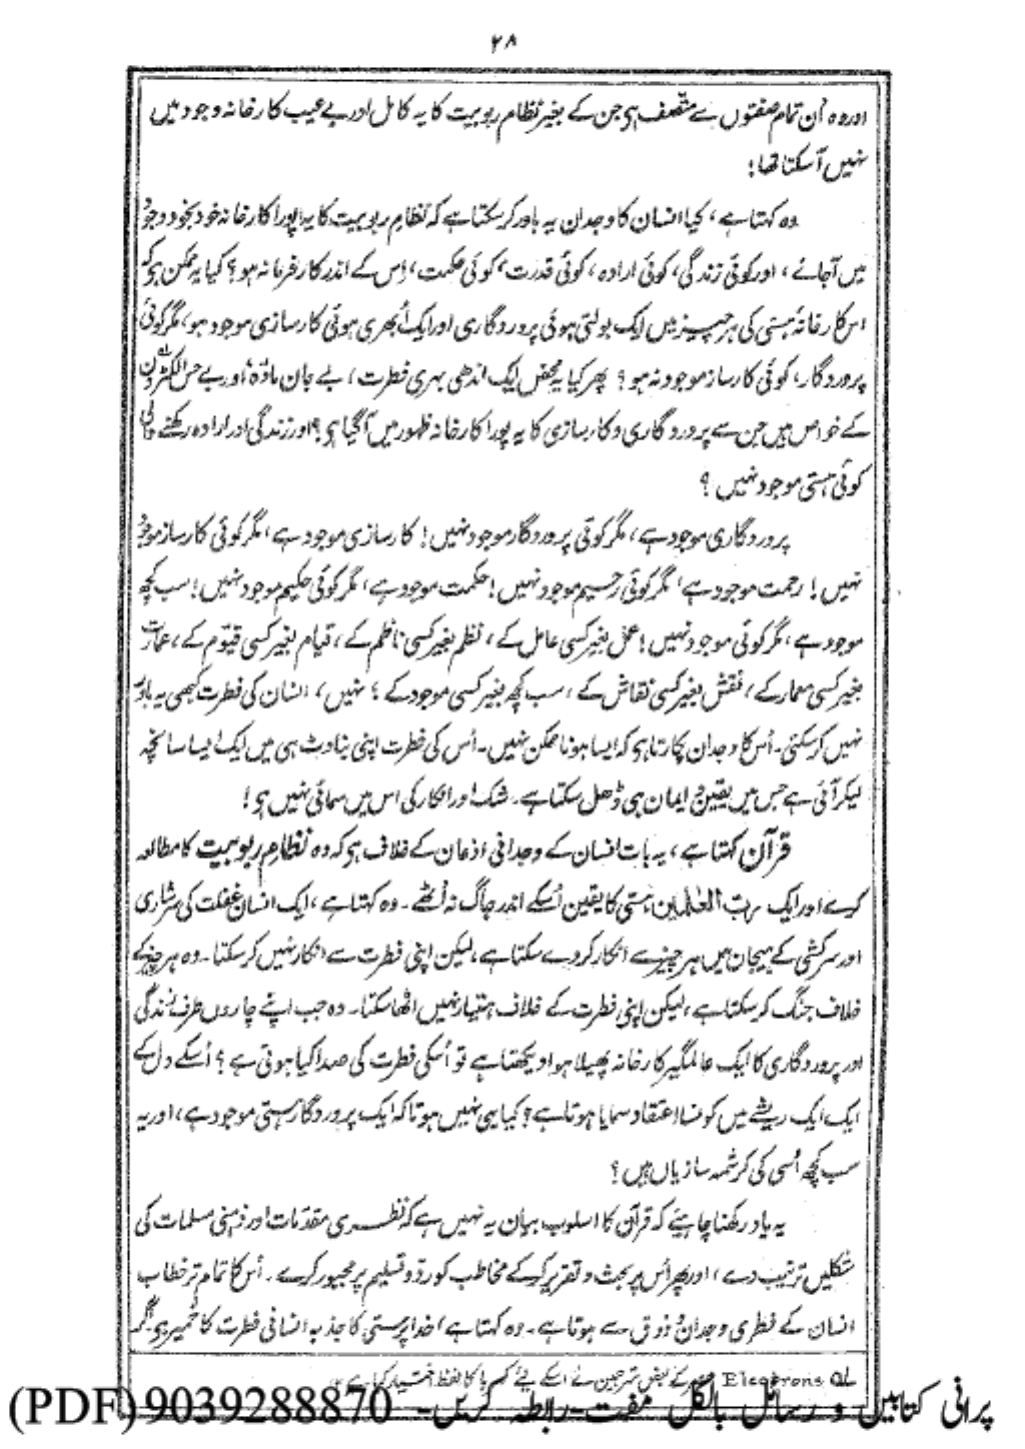 ۲۸
اور وہ اُن تمام صفتوں سے متصف ہی جن کے بغیر نظام ربوبیت کا یہ کامل اور بے عیب کارخانہ وجود میں
نہیں آسکتا تھا!
وہ کہتا ہے، کیا انسان کا وجدان یہ باور کرسکتا ہے کہ نظامِ ربوبیت کا یہ پورا کارخانہ خود بخود وجود
میں آجائے، اور کوئی زندگی، کوئی ارادہ، کوئی قدرت، کوئی حکمت، اِس کے اندر کارفرما نہ ہو؟ کیا یہ ممکن ہی کہ
اس کارخانۂ ہستی کی ہر چیز میں ایک بولتی ہوئی پروردگاری اور ایک اُبھری ہوئی کارسازی موجود ہو، مگر کوئی
پروردگار، کوئی کارساز موجود نہ ہو؟ پھر کیا یہ محض ایک اندھی بہری فطرت، بے جان مادّہ اور بے حس الکٹرون
کے خواص ہیں جن سے پروردگاری و کارسازی کا یہ پورا کارخانہ ظہور میں آگیا ہی؟ اور زندگی اور ارادہ رکھنے والی
کوئی ہستی موجود نہیں؟
پروردگاری موجود ہے، مگر کوئی پروردگار موجود نہیں! کارسازی موجود ہے، مگر کوئی کارساز موجود
نہیں! رحمت موجود ہے، مگر کوئی رحیم موجود نہیں! حکمت موجود ہے، مگر کوئی حکیم موجود نہیں! سب کچھ
موجود ہے، مگر کوئی موجود نہیں! عمل بغیر کسی عامل کے، نظم بغیر کسی ناظم کے، قیام بغیر کسی قیّوم کے، عمارت
بغیر کسی معمار کے، نقش بغیر کسی نقاش کے، سب کچھ بغیر کسی موجود کے؟ نہیں، انسان کی فطرت کبھی یہ باور
نہیں کرسکتی۔ اُس کا وجدان پکارتا ہی کہ ایسا ہونا ممکن نہیں۔ اُس کی فطرت اپنی بناوٹ ہی میں ایک ایسا سانچہ
لیکر آئی ہے جس میں یقین و ایمان ہی ڈھل سکتا ہے۔ شک اور انکار کی اس میں سمائی نہیں ہی!
قرآن کہتا ہے، یہ بات انسان کے وجدانی اذعان کے خلاف ہی کہ وہ نظامِ ربوبیت کا مطالعہ
کرے اور ایک ربّ العٰلمین ہستی کا یقین اُسکے اندر جاگ نہ اُٹھے۔ وہ کہتا ہے، ایک انسان غفلت کی سرشاری
اور سرکشی کے ہیجان میں ہر چیز سے انکار کردے سکتا ہے، لیکن اپنی فطرت سے انکار نہیں کرسکتا۔ وہ ہر چیز کے
خلاف جنگ کرسکتا ہے، لیکن اپنی فطرت کے خلاف ہتیار نہیں اٹھا سکتا۔ وہ جب اپنے چاروں طرف زندگی
اور پروردگاری کا ایک عالمگیر کارخانہ پھیلا ہوا دیکھتا ہے تو اُسکی فطرت کی صدا کیا ہوتی ہے؟ اُسکے دل کے
ایک ایک ریشے میں کونسا اعتقاد سمایا ہوتا ہے؟ کیا یہی نہیں ہوتا کہ ایک پروردگار ہستی موجود ہے، اور یہ
سب کچھ اُسی کی کرشمہ سازیاں ہیں؟
یہ یاد رکھنا چاہیئے کہ قرآن کا اسلوب بیان یہ نہیں ہے کہ نظری مقدّمات اور ذہنی مسلمات کی
شکلیں ترتیب دے، اور پھر اُس پر بحث و تقریر کرکے مخاطب کو ردّ و تسلیم پر مجبور کرے۔ اُس کا تمام تر خطاب
انسان کے فطری وجدان و ذوق سے ہوتا ہے۔ وہ کہتا ہے، خدا پرستی کا جذبہ انسانی فطرت کا خمیر ہی۔ اگر
لہ Electrons کے بعض مترجمین نے اسکے لیے کہربا کا لفظ اختیار کیا ہے
پرانی کتابیں و رسائل بالکل مفت۔ رابطہ کریں۔ 9039288870 (PDF)